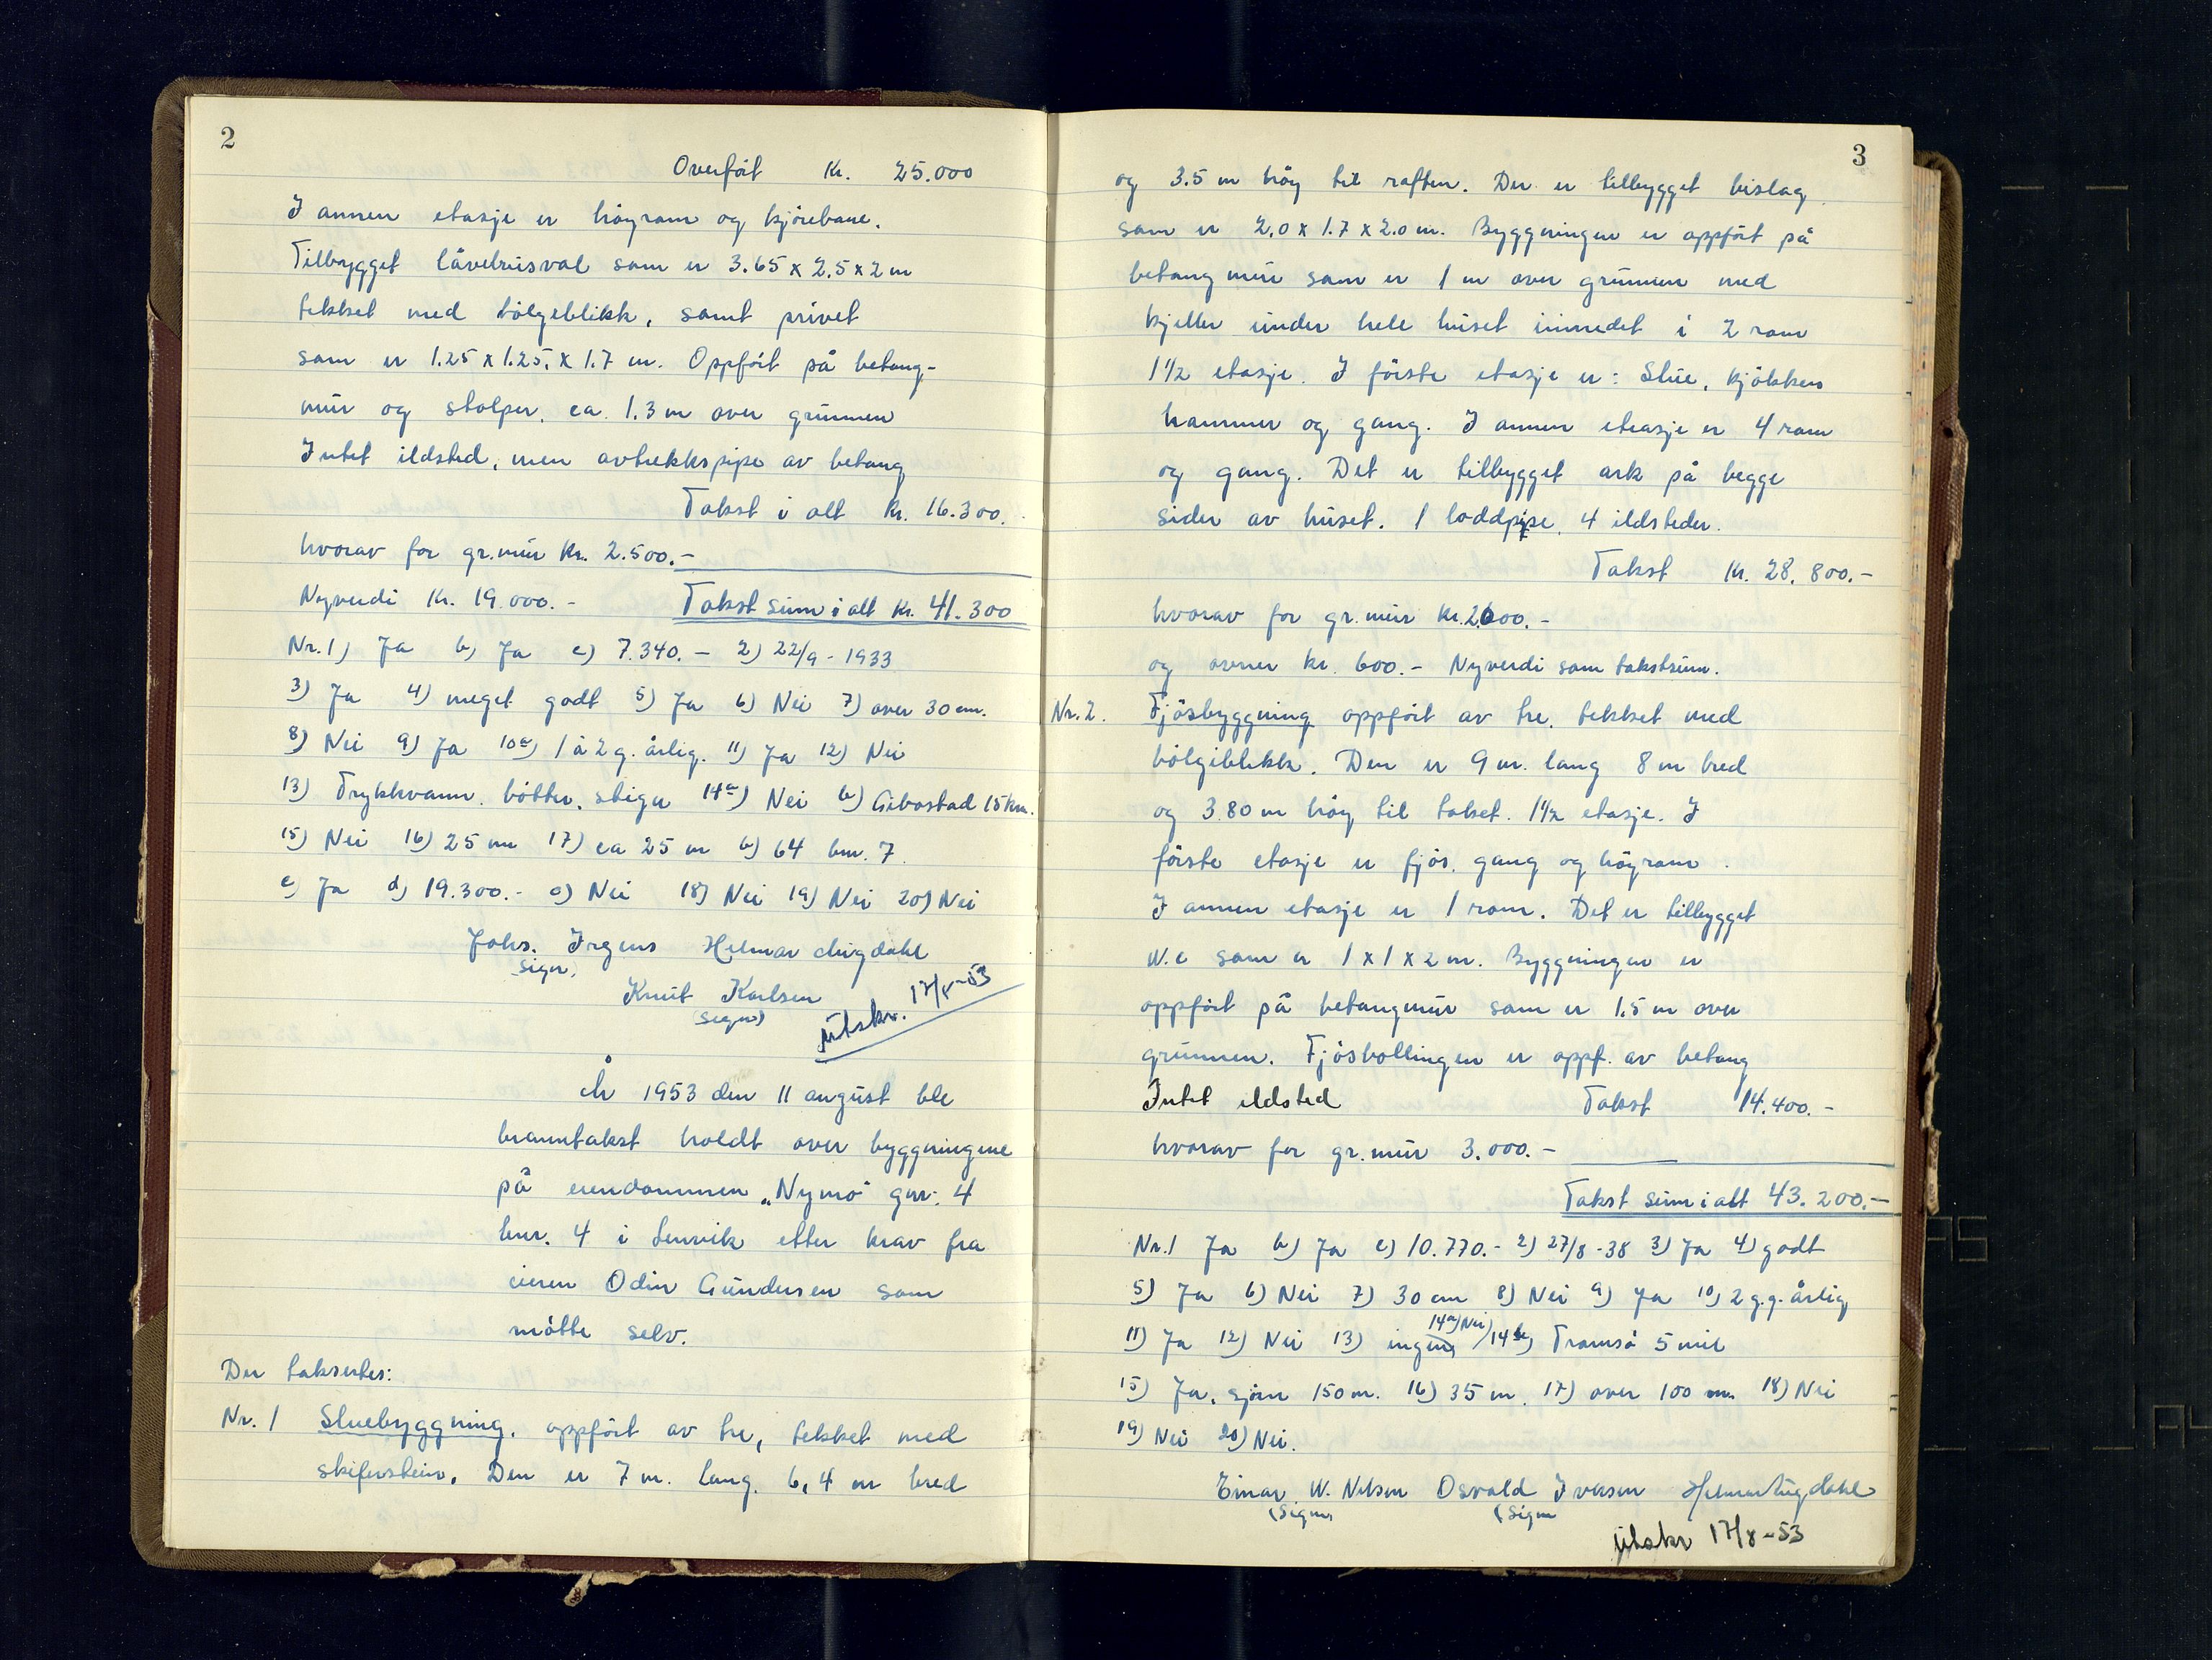 2
Overført Kr. 25.000
I annen etasje er høyrom og kjørebane.
Tilbygget låvebrusval som er 3.65 x 2.5 x 2 m
tekket med bølgeblikk, samt privet
som er 1.25 x 1.25. x 1.7 m. Oppført på betong-
mur og stolper. ca. 1.3 m over grunnen
Intet ildsted, men avtrekkspipe av betong
Takst i alt kr. 16.300.
hvorav for gr.mur kr. 2.500.-
Nyverdi kr. 19.000.- Takst sum i alt kr. 41.300
Nr. 1) Ja b) Ja c) 7.340.- 2) 22/9 - 1933
3) Ja 4) meget godt 5) Ja 6) Nei 7) over 30 cm.
8) Nei 9) Ja 10a) 1 à 2 g. årlig. 11) Ja 12) Nei
13) Trykkvann. bøtter, stiger 14a) Nei b) Gibostad 15 km.
15) Nei 16) 25 m 17) ca 25 m b) 64 bnr. 7.
c) Ja d) 19.300.- e) Nei 18) Nei 19) Nei 20) Nei
Johs. Irgens Helmar Lugdahl
sign.
Knut Karlsen
(sign)
utskr. 17/8-53
År 1953 den 11 august ble
branntakst holdt over byggningene
på eiendommen "Nymo" gnr. 4
bnr. 4 i Lenvik etter krav fra
eieren Odin Gundersen som
møtte selv.
Der taksertes:
Nr. 1 Stuebyggning, oppført av tre, tekket med
skiferstein. Den er 7 m. lang. 6,4 m bred
3
og 3.5 m høy til raften. Der er tilbygget bislag
som er 2.0 x 1.7 x 2.0 m. Byggningen er oppført på
betong mur som er 1 m over grunnen med
kjeller under hele huset innredet i 2 rom
1 1/2 etasje. I første etasje er: Stue, kjøkken
kammer og gang. I annen etasje er 4 rom
og gang. Det er tilbygget ark på begge
sider av huset. 1 loddpipe. 4 ildsteder.
Takst Kr. 28.800.-
hvorav for gr. mur kr. 2600.-
og ovner kr. 600.- Nyverdi som takstsum.
Nr. 2. Fjøsbyggning oppført av tre, tekket med
bølgiblikk. Den er 9 m. lang 8 m bred
og 3.80 m høy til taket. 1 1/2 etasje. I
første etasje er fjøs, gang og høyrom.
I annen etasje er 1 rom. Det er tilbygget
W.c som er 1 x 1 x 2 m. Byggningen er
oppført på betongmur som er 1,5 m over
grunnen. Fjøsbollingen er oppf. av betong
Intet ildsted Takst 14.400.-
hvorav for gr. mur 3.000.-
Takst sum i alt 43.200.-
Nr. 1 Ja b) Ja c) 10.770.- 2) 27/8-38 3) Ja 4) godt
5) Ja 6) Nei 7) 30 cm 8) Nei 9) Ja 10) 2 g.g. årlig
11) Ja 12) Nei 13) ingen 14a) Nei 14b) Tromsø 5 mil
15) Ja, sjøen 150 m. 16) 35 m. 17) over 100 m 18) Nei
19) Nei 20) Nei.
Einar W. Nilsen Osvald Iversen Helmar Lugdahl
(Sign) (Sign
utskr 17/8-53